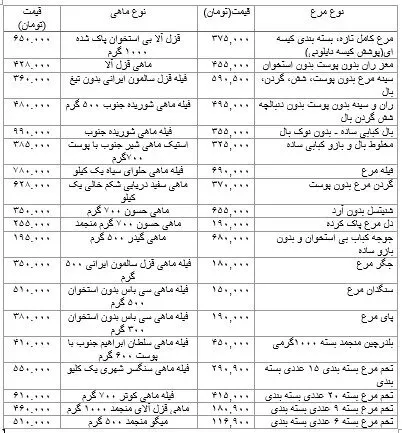 نوع مرغ قیمت(تومان) نوع ماهی قیمت (تومان)
مرغ کامل تازه، بسته بندی کیسه ای(پوشش کیسه نایلونی) ۳۷۵,۰۰۰ قزل آلا بی استخوان پاک شده ۱۰۰۰ گرم ۶۵۰.۰۰۰
مغز ران بدون پوست بدون استخوان ۴۵۵,۰۰۰ ماهی قزل آلا ۴۲۸.۰۰۰
سینه مرغ بدون پوست، شش، گردن، بال ۵۹۰,۵۰۰ فیله قزل سالمون ایرانی بدون تیغ ۳۶۰.۰۰۰
ران و سینه بدون پوست بدون دنبالچه شش گردن بال ۴۹۵,۰۰۰ فیله ماهی شوریده جنوب ۵۰۰ گرم ۴۸۰.۰۰۰
بال کبابی ساده - بدون نوک بال ۳۵۵,۰۰۰ فیله ماهی شوریده جنوب ۹۹۰.۰۰۰
مخلوط بال و بازو کبابی ساده ۳۲۵,۰۰۰ استیک ماهی شیر جنوب با پوست ۷۰۰گرم ۳۸۵.۰۰۰
فیله مرغ ۶۹۰,۰۰۰ فیله ماهی حلوای سیاه یک کیلو ۷۸۰.۰۰۰
گردن مرغ بدون پوست ۳۷۰,۰۰۰ ماهی سفید دریایی شکم خالی یک کیلو ۶۲۸.۰۰۰
شنیتسل بدون آرد ۶۵۵,۰۰۰ ماهی حسون ۷۰۰ گرم ۳۵۰.۰۰۰
دل مرغ پاک کرده ۱۹۰,۰۰۰ ماهی حسون ۷۰۰ گرم منجمد ۲۵۵.۰۰۰
جوجه کباب بی استخوان و بدون بازو ساده ۶۸۰,۰۰۰ ماهی گیدر ۵۰۰ گرم ۱۹۵.۰۰۰
جگر مرغ ۱۸۰,۰۰۰ فیله ماهی قزل سالمون ایرانی ۵۰۰ گرم ۳۵۰.۰۰۰
سنگدان مرغ ۱۵۰,۰۰۰ فیله ماهی سی باس بدون استخوان ۵۰۰ گرم ۵۱۰.۰۰۰
پای مرغ ۱۹۰,۰۰۰ فیله ماهی سی باس بدون استخوان ۳۰۰ گرم ۳۸۰.۰۰۰
بلدرچین منجمد بسته ۱۰۰۰گرمی ۴۵۰,۰۰۰ فیله ماهی سلطان ابراهیم جنوب با پوست ۶۰۰ گرم ۴۱۰.۰۰۰
تخم مرغ بسته بندی ۱۵ عددی بسته بندی ۲۹۰,۹۰۰ فیله ماهی سنگسر شهری یک کلیو ۵۵۰.۰۰۰
تخم مرغ بسته ۲۰ عددی بسته بندی ۴۱۵,۰۰۰ فیله ماهی کوتر ۷۰۰ گرم ۶۱۰.۰۰۰
تخم مرغ بسته ۹ عددی بسته بندی ۱۸۰,۹۰۰ ماهی قزل آلای منجمد ۱۰۰۰ گرم ۴۶۰.۰۰۰
تخم مرغ بسته ۶ عددی بسته بندی ۱۱۶,۹۰۰ میگو منجمد ۵۰۰ گرم ۵۱۰.۰۰۰